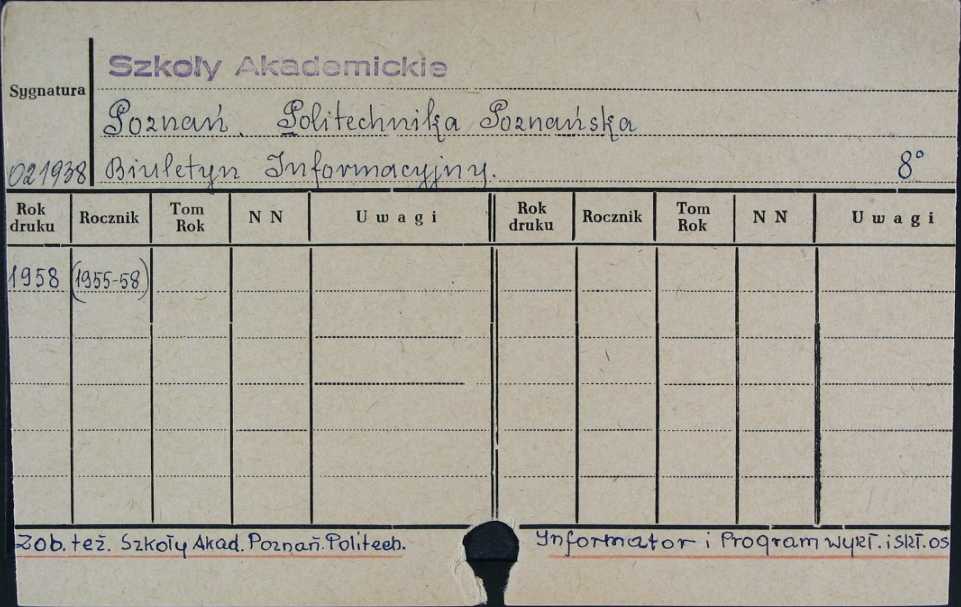 Szkoły Akademickie
Sygnatura
Poznań. Politechnika Poznańska
021938 Biuletyn Informacyjny. 8°
Rok druku Rocznik Tom Rok N N Uwagi Rok druku Rocznik Tom Rok N N Uwagi
1958 (1955-58)
Zob. też. Szkoły Akad. Poznań. Politech. Informator i Program wykł. i skł. os